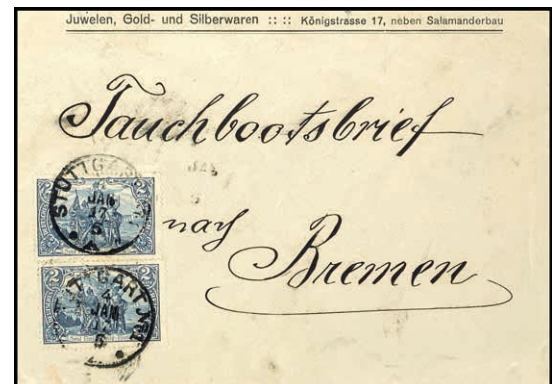 Juwelen, Gold- und Silberwaren :: :: Königstrasse 17, neben Salamanderbau
Tauchbootsbrief
nach
Bremen
2
STUTTGART
JAN
17
5
2
STUTTGART
4
JAN
17
5